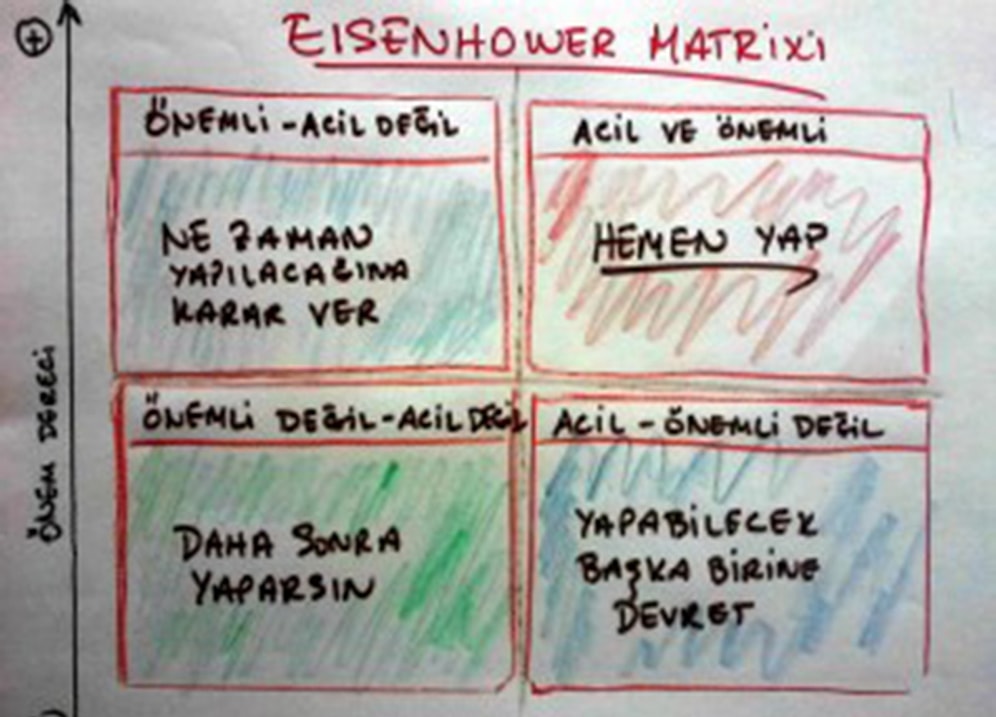 EISENHOWER MATRIXI
ÖNEMLİ - ACİL DEĞİL
NE ZAMAN
YAPILACAĞINA
KARAR VER
ACİL VE ÖNEMLİ
HEMEN YAP
ÖNEMLİ DEĞİL - ACİL DEĞİL
DAHA SONRA
YAPARSIN
ACİL - ÖNEMLİ DEĞİL
YAPABİLECEK
BAŞKA BİRİNE
DEVRET
ÖNEM DERECİ
+